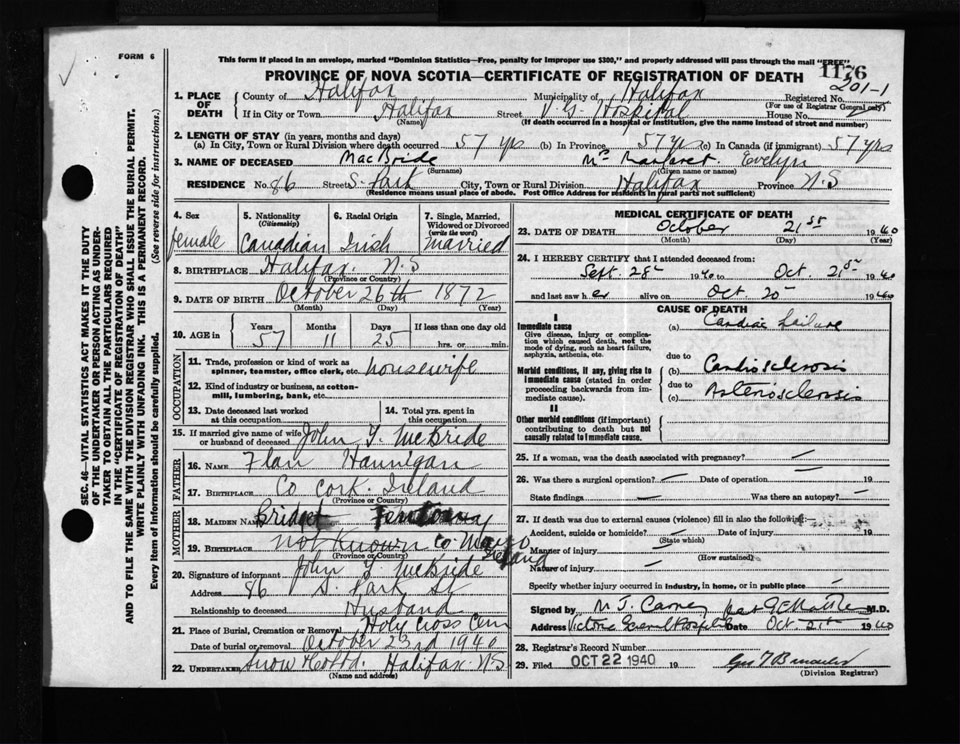 FORM 6
This form if placed in an envelope, marked "Dominion Statistics—Free, penalty for improper use $300," and properly addressed will pass through the mail "FREE"
1176
PROVINCE OF NOVA SCOTIA—CERTIFICATE OF REGISTRATION OF DEATH
201-1
1. PLACE OF DEATH County of Halifax Municipality of Halifax Registered No.
(For use of Registrar General only)
If in City or Town Halifax Street V.G. Hospital House No.
(Name) (If death occurred in a hospital or institution, give the name instead of street and number)
2. LENGTH OF STAY (in years, months and days)
(a) In City, Town or Rural Division where death occurred 57 yrs (b) In Province 57 yrs (c) In Canada (if immigrant) 57 yrs
3. NAME OF DECEASED MacBride Margaret Evelyn
(Surname) (Given name or names)
RESIDENCE No. 86 Street S. Park City, Town or Rural Division Halifax Province N.S
(Residence means usual place of abode. Post Office Address for residents in rural parts not sufficient)
4. Sex
female
5. Nationality (Citizenship)
Canadian
6. Racial Origin
Irish
7. Single, Married, Widowed or Divorced (write the word)
married
8. BIRTHPLACE Halifax. N.S
(Province or Country)
9. DATE OF BIRTH October 26th 1872
(Month) (Day) (Year)
10. AGE in Years Months Days If less than one day old
57 11 25 hrs. or min.
OCCUPATION
11. Trade, profession or kind of work as spinner, teamster, office clerk, etc. housewife
12. Kind of industry or business, as cotton-mill, lumbering, bank, etc.
13. Date deceased last worked at this occupation
14. Total yrs. spent in this occupation
15. If married give name of wife or husband of deceased John Y. McBride
FATHER
16. NAME Flan Hannigan
17. BIRTHPLACE Co Cork. Ireland
(Province or Country)
MOTHER
18. MAIDEN NAME Bridget
19. BIRTHPLACE not known Co. Mayo Ireland
(Province or Country)
20. Signature of informant John Y. McBride
Address 86 S. Park St
Relationship to deceased Husband
21. Place of Burial, Cremation or Removal Holy Cross Cem
Date of burial or removal October 23rd 1940
22. UNDERTAKER Snow Co Ltd. Halifax N.S
(Name and address)
MEDICAL CERTIFICATE OF DEATH
23. DATE OF DEATH October 21st 1940
(Month) (Day) (Year)
24. I HEREBY CERTIFY that I attended deceased from:
Sept. 28 1940 to Oct. 21st 1940
and last saw her alive on Oct. 20 1940
CAUSE OF DEATH
I
Immediate cause
Give disease, injury or complication which caused death, not the mode of dying, such as heart failure, asphyxia, asthenia, etc.
(a) Cardiac failure
due to
Morbid conditions, if any, giving rise to immediate cause (stated in order proceeding backwards from immediate cause).
(b) Cardiosclerosis
due to
(c) Arteriosclerosis
II
Other morbid conditions (if important) contributing to death but not causally related to immediate cause.
25. If a woman, was the death associated with pregnancy? —
26. Was there a surgical operation? — Date of operation 19
State findings — Was there an autopsy? —
27. If death was due to external causes (violence) fill in also the following:—
Accident, suicide or homicide? — Date of injury 19
(State which)
Manner of injury —
(How sustained)
Nature of injury —
Specify whether injury occurred in industry, in home, or in public place —
Signed by M J Carney M.D.
Address Victoria General Hospital Date Oct. 21st 1940
28. Registrar's Record Number
29. Filed OCT 22 1940 19
(Division Registrar)
SEC. 46—VITAL STATISTICS ACT MAKES IT THE DUTY
OF THE UNDERTAKER OR PERSON ACTING AS UNDER-
TAKER TO OBTAIN ALL THE PARTICULARS REQUIRED
IN THE "CERTIFICATE OF REGISTRATION OF DEATH"
AND TO FILE THE SAME WITH THE DIVISION REGISTRAR WHO SHALL ISSUE THE BURIAL PERMIT.
WRITE PLAINLY WITH UNFADING INK. THIS IS A PERMANENT RECORD.
Every item of information should be carefully supplied. (See reverse side for instructions.)